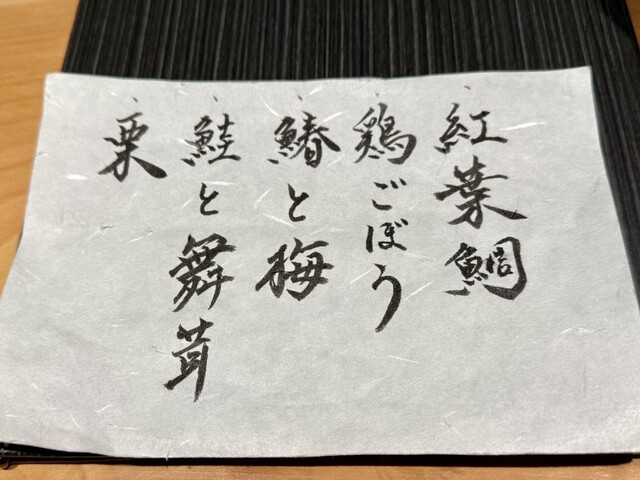 紅葉鯛
鶏ごぼう
鰆と梅
鮭と舞茸
栗